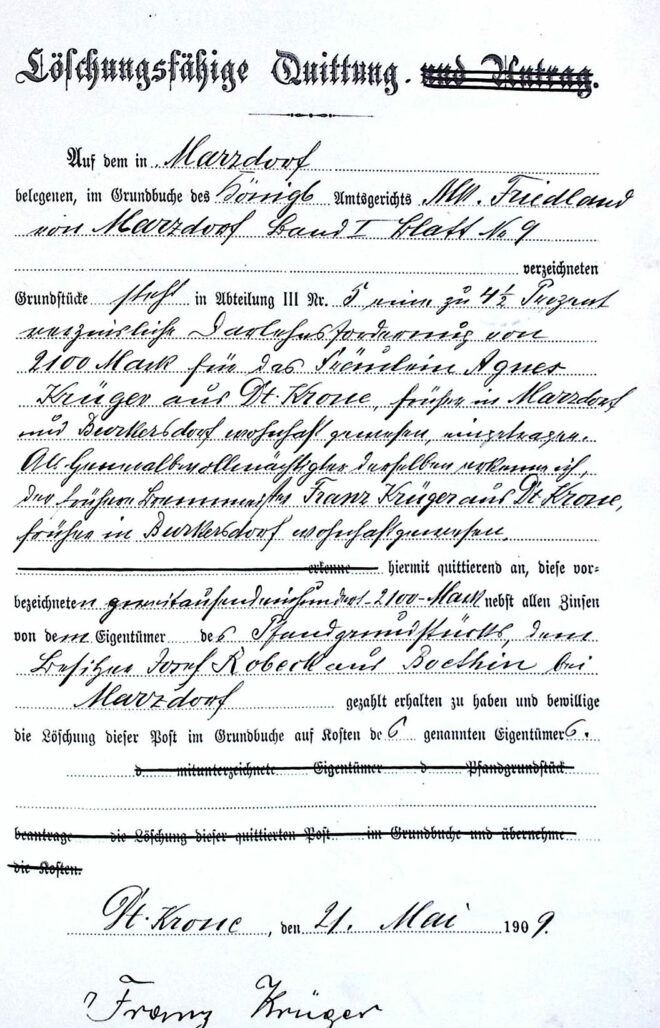 Löschungsfähige Quittung. und Antrag.
Auf dem in Marzdorf
belegenen, im Grundbuche des Königl. Amtsgerichts Mk. Friedland
von Marzdorf Band I Blatt No 9
verzeichneten
Grundstücke steht in Abteilung III Nr. 5 eine zu 4½ Prozent
verzinsliche Darlehnsforderung von
2100 Mark für das Fräulein Agnes
Krüger aus Dt. Krone, früher in Marzdorf
und Burkersdorf wohnhaft gewesen, eingetragen.
Als Generalbevollmächtigter derselben erkenne ich,
der frühere Brennmeister Franz Krüger aus Dt. Krone,
früher in Burkersdorf wohnhaft gewesen.
erkenne hiermit quittierend an, diese vor-
bezeichneten zweitausendeinhundert - 2100 - Mark nebst allen Zinsen
von dem Eigentümer des Pfandgrundstücks, dem
Besitzer Josef Robeck aus Boethin bei
Marzdorf gezahlt erhalten zu haben und bewillige
die Löschung dieser Post im Grundbuche auf Kosten des genannten Eigentümers.
d mitunterzeichnete Eigentümer d Pfandgrundstück
beantrage die Löschung dieser quittierten Post im Grundbuche und übernehme
die Kosten.
Dt. Krone, den 21. Mai 1909.
Franz Krüger